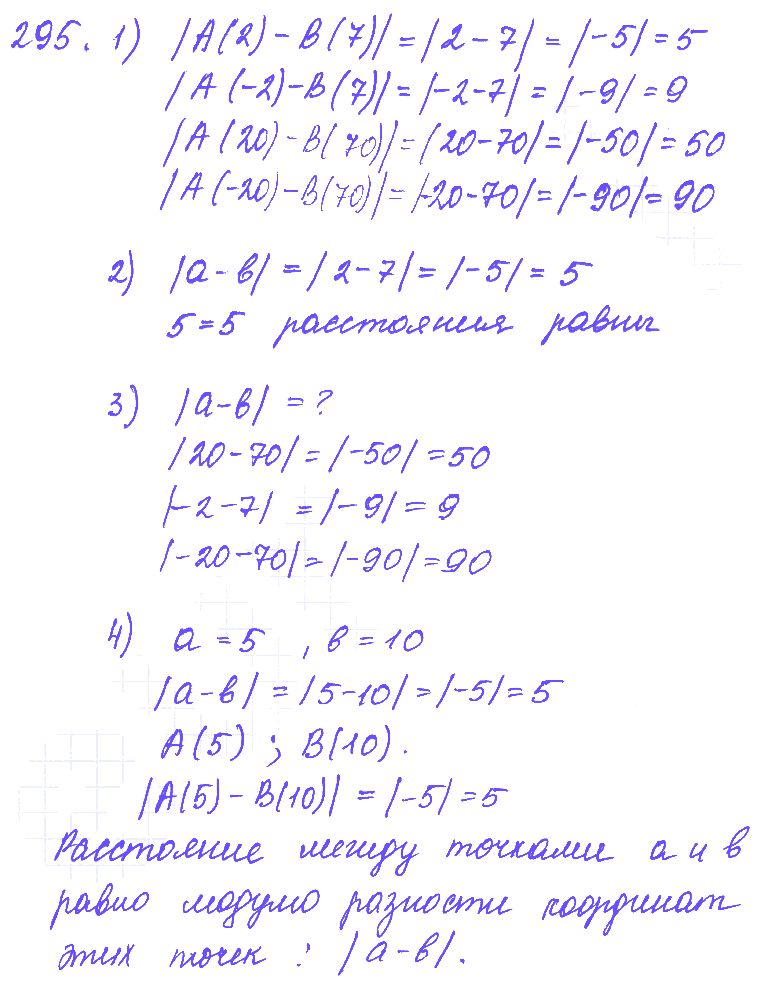 295. 1) |A(2) - B(7)| = |2 - 7| = |-5| = 5
|A(-2) - B(7)| = |-2 - 7| = |-9| = 9
|A(20) - B(70)| = |20 - 70| = |-50| = 50
|A(-20) - B(70)| = |-20 - 70| = |-90| = 90
2) |a - в| = |2 - 7| = |-5| = 5
5 = 5 расстояния равны
3) |a - в| = ?
|20 - 70| = |-50| = 50
|-2 - 7| = |-9| = 9
|-20 - 70| = |-90| = 90
4) a = 5 , в = 10
|a - в| = |5 - 10| = |-5| = 5
A(5) ; B(10).
|A(5) - B(10)| = |-5| = 5
Расстояние между точками a и в
равно модулю разности координат
этих точек : |a - в|.